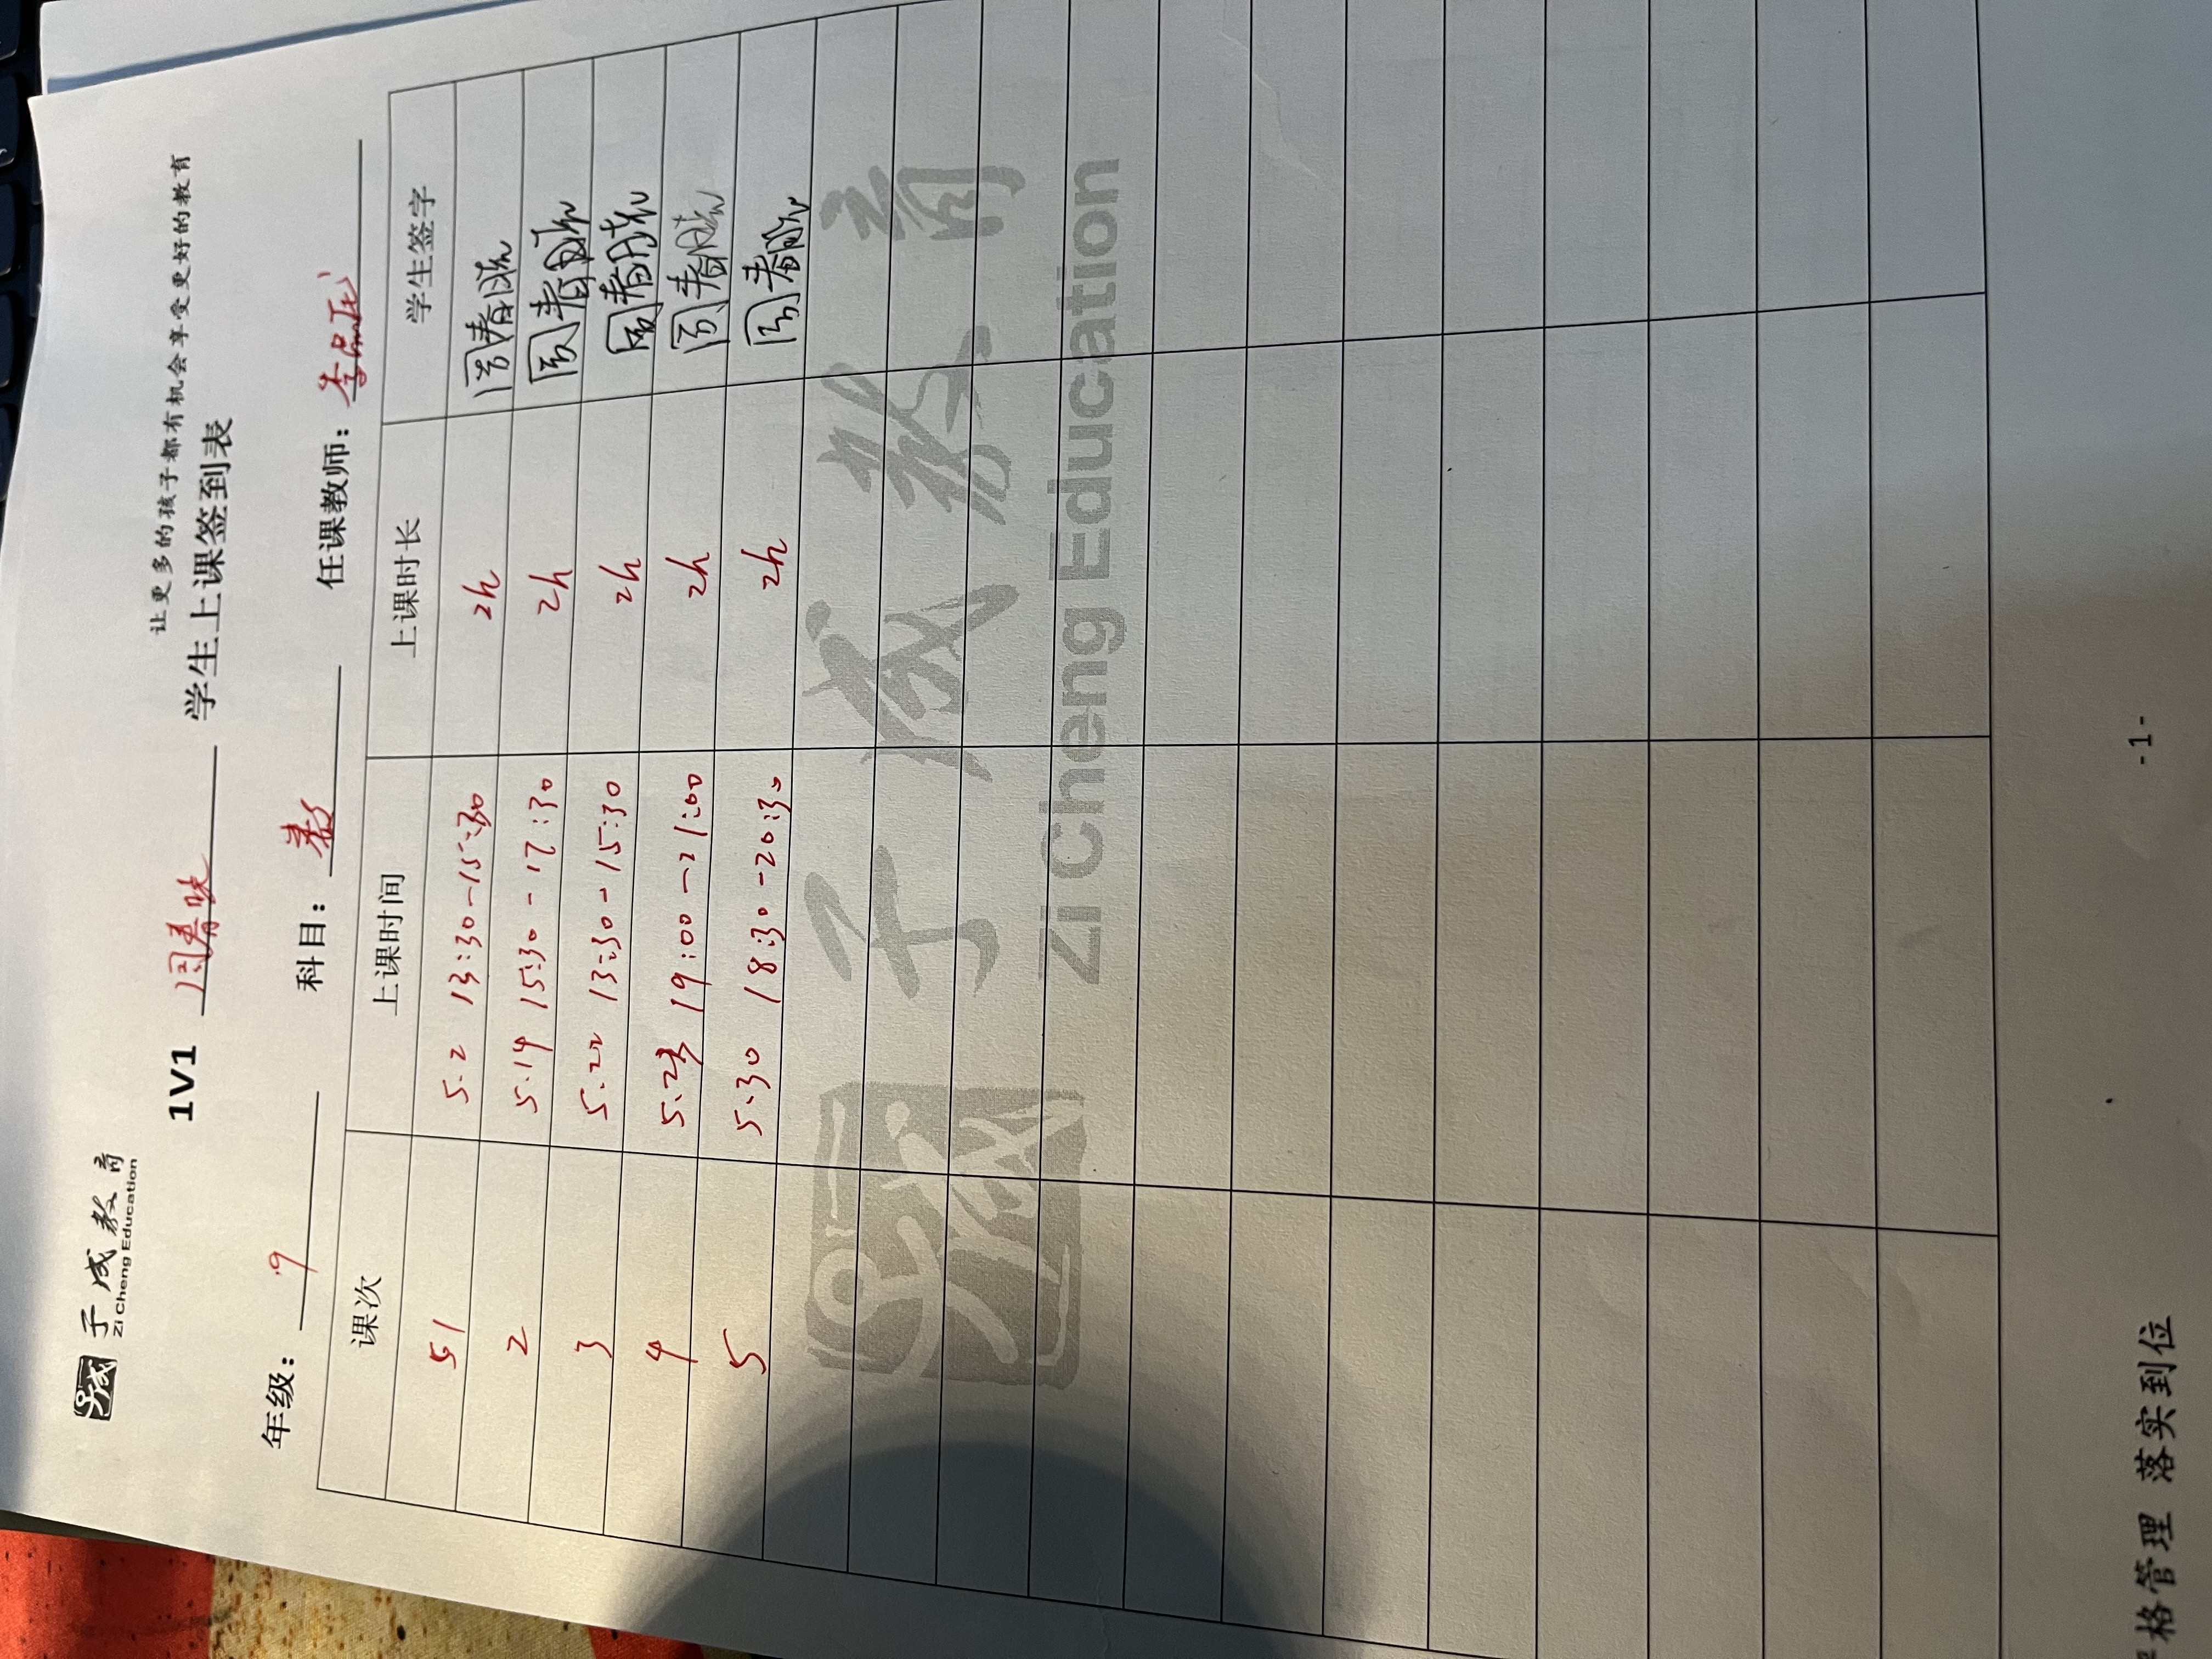 子成教育
Zi Cheng Education
让更多的孩子都有机会享受更好的教育
1V1 周春晓 学生上课签到表
年级: 9 科目: 数 任课教师: 李
课次 上课时间 上课时长 学生签字
51 5.2 13:30-15:30 2h 周春晓
2 5.14 15:30-17:30 2h 周春晓
3 5.22 13:30-15:30 2h 周春晓
4 5.23 19:00-21:00 2h 周春晓
5 5.30 18:30-20:30 2h 周春晓
子成教育
Zi Cheng Education
严格管理 落实到位
-1-